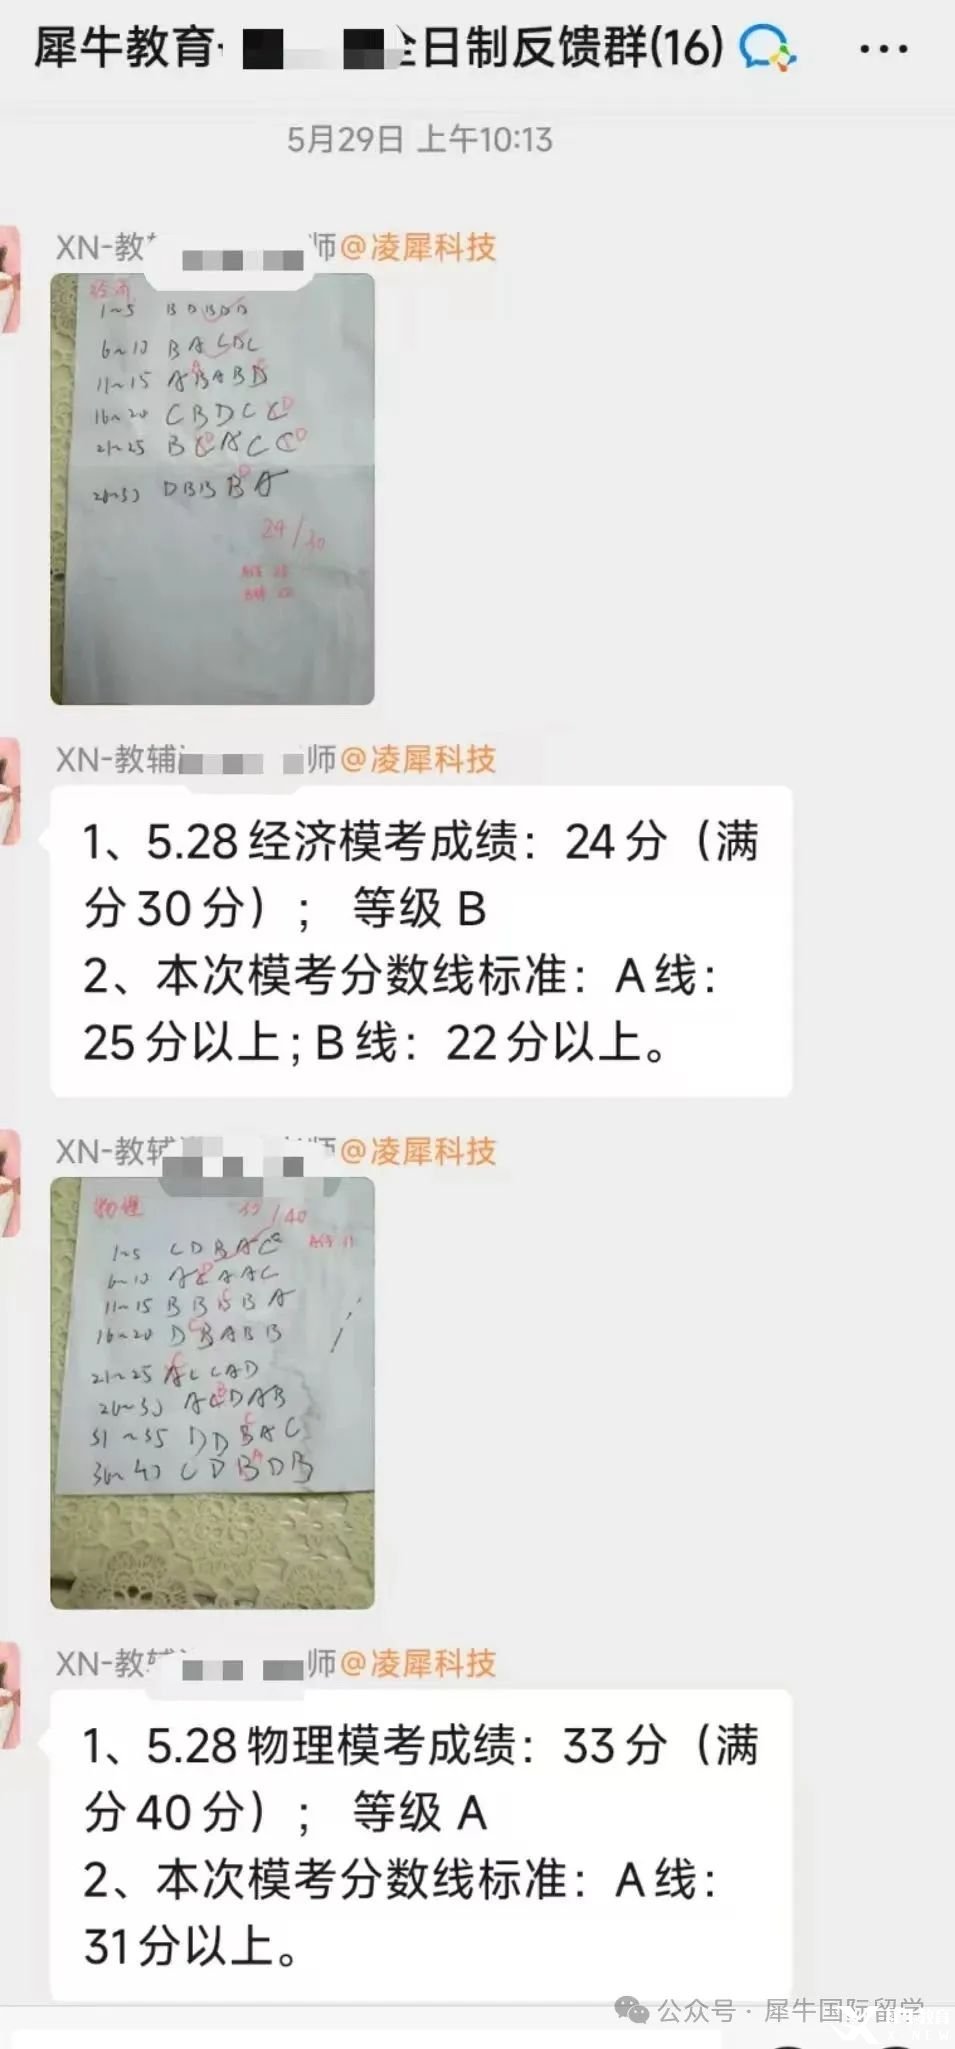 犀牛教育·
全日制反馈群(16)
5月29日 上午10:13
XN-教
师@凌犀科技
1~5 B D B D D
6~10 B A C D C
11~15 A B A B D
16~20 C B D C C D
21~25 B C D A C C D
D B B B D A
24/30
XN-教辅
师@凌犀科技
1、5.28经济模考成绩：24分（满
分30分）； 等级 B
2、本次模考分数线标准：A线：
25分以上;B线：22分以上。
XN-教辅
@凌犀科技
物理
/40
1~5 C D B A C
6~10 A C A A C
11~15 B B B B A
16~20 D B A B B
21~25 A C C A D
A C D A B
31~35 D D B A C
36~40 C D B A D B
XN-教
师@凌犀科技
1、5.28物理模考成绩：33分（满
分40分）； 等级 A
2、本次模考分数线标准：A线：
31分以上。
公众号·犀牛国际留学